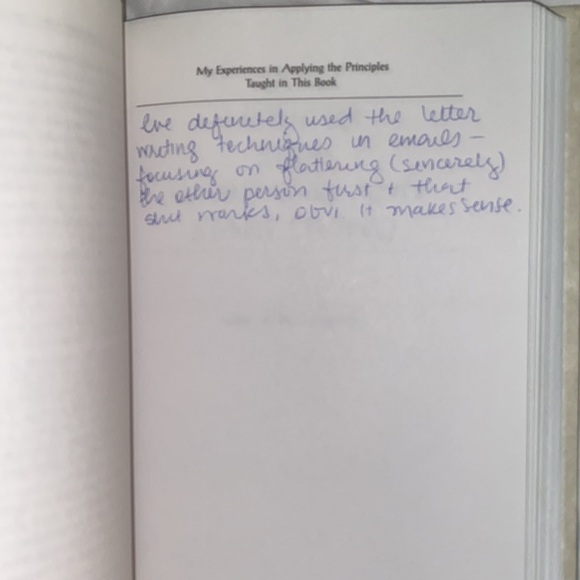 My Experiences in Applying the Principles
Taught in This Book
I've definitely used the letter
writing techniques in emails –
focusing on flattering (sincerely)
the other person first + that
shit works, obvi it makes sense.